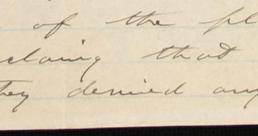 of the pl
claing that
they denied any